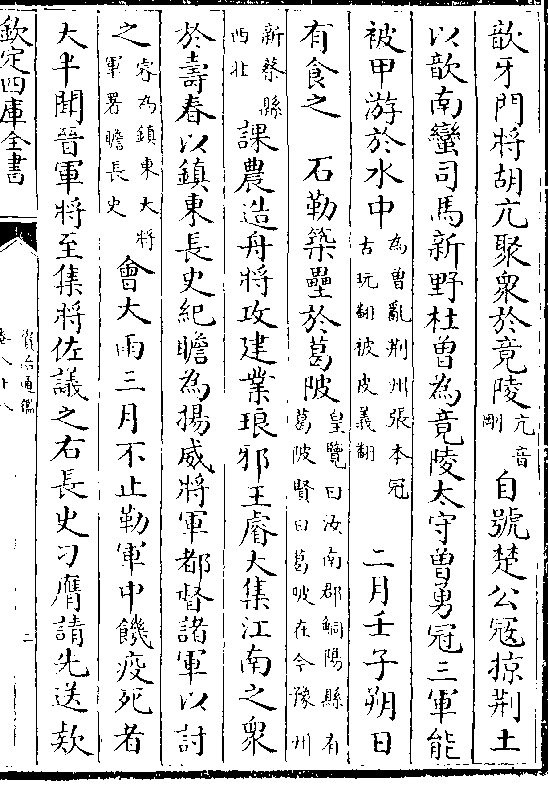 歆牙門將胡亢聚衆於竟陵亢音剛自號楚公寇掠荆土
以歆南蠻司馬新野杜曽為竟陵太守曽勇冠三軍能
被甲游於水中為曽亂荆州張本冠古玩翻被皮義翻二月壬子朔日
有食之　石勒築壘於葛陂皇覽曰汝南郡鮦陽縣有葛陂賢曰葛陂在今豫州
新蔡縣西北課農造舟將攻建業琅邪王睿大集江南之衆
於壽春以鎮東長史紀瞻為揚威將軍都督諸軍以討
之睿為鎮東大將軍署瞻長史會大雨三月不止勒軍中饑疫死者
大半聞晉軍將至集將佐議之右長史刁膺請先送欵
欽定四庫全書
資治通鑑
卷八十八
二